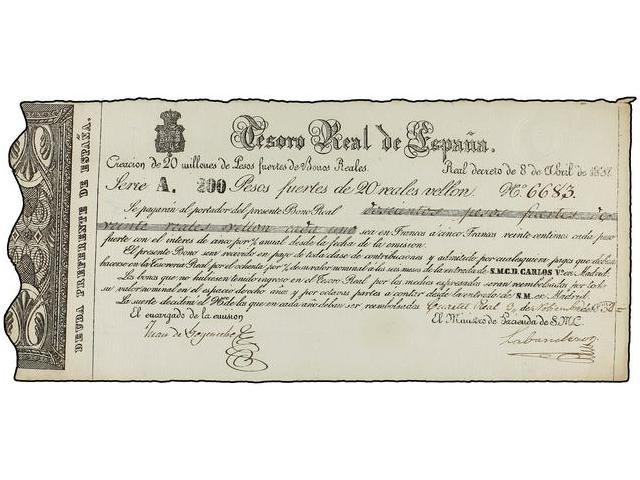 DEUDA PREFERENTE DE ESPAÑA.
Tesoro Real de España.
Creacion de 20 millones de Pesos fuertes de Bonos Reales.
Real decreto de 8 de Abril de 1837
Serie A. 200 Pesos fuertes de 20 reales vellon. Nº 6683.
Se pagarán al portador del presente Bono Real doscientos pesos fuertes de
veinte reales vellon cada uno sea en Francia á cinco Francos veinte centimos cada peso
fuerte con el interes de uno por % anual desde la fecha de la emision.
El presente Bono sera recivido en pago de toda clase de contribuciones y admitido por cualesquiera pagos que deban
hacerse en la tesoreria Real por el ochenta por % de su valor nominal á los seis meses de la entrada de S.M.C.D. CARLOS Vº en Madrid.
Los bonos que no hubiesen tenido ingreso en el Tesoro Real por los medios espresados seran reembolsados por todo
su valor nominal en el espacio de ocho años y por octavas partes á contar desde la entrada de S.M. en Madrid.
La suerte decidirá el Nº de los que en cada año deban ser reembolsados Cuartel Real 3 de Noviembre de 1837
El encargado de la emision
El Ministro de Hacienda de S.M.C.
Juan de Goyeneche
Labandero